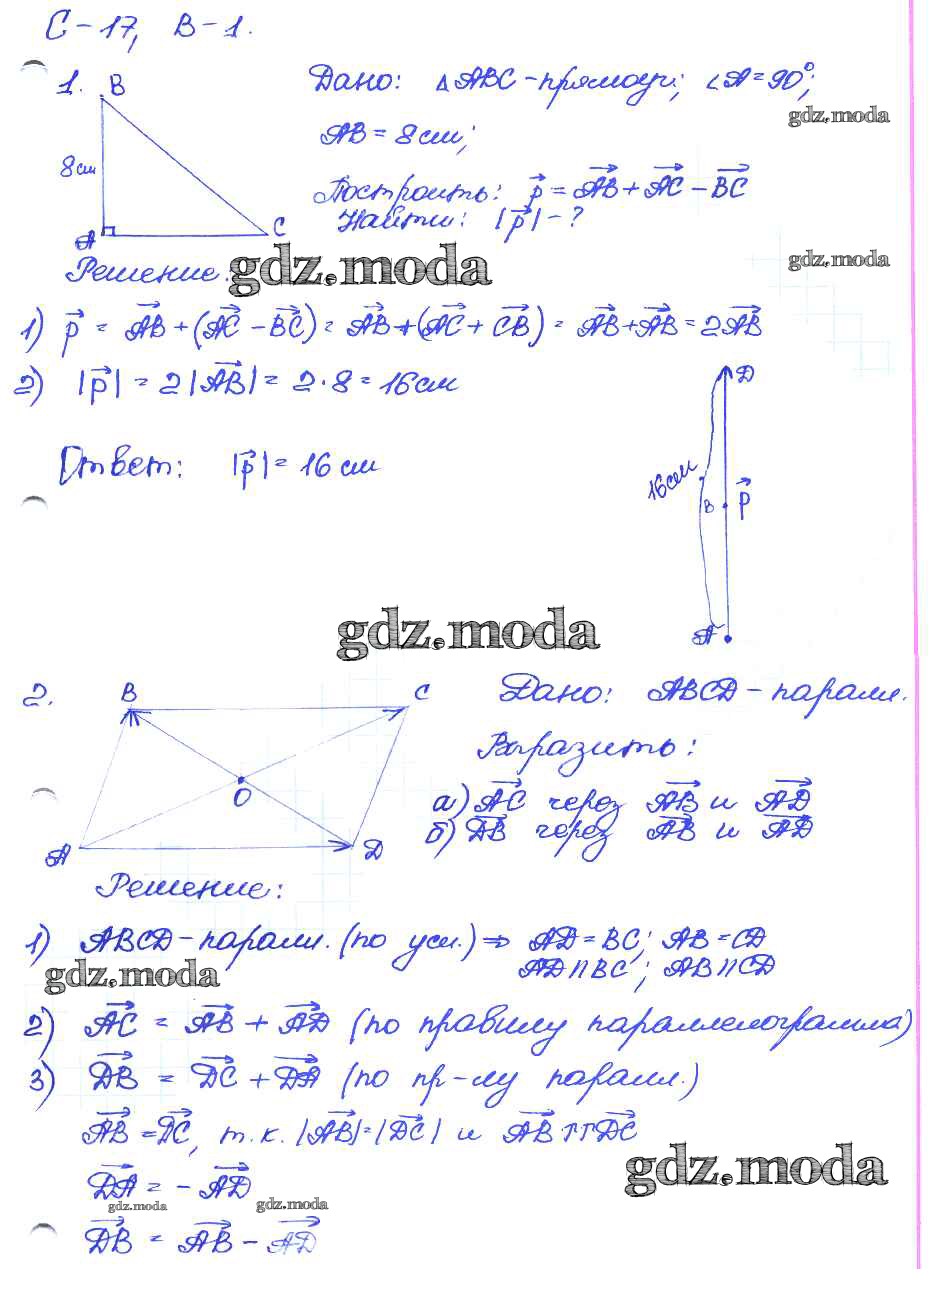 С-17, В-1.
1. B
8см
A
C
Дано: △ABC-прямоуг.; ∠A=90°;
AB = 8см;
Построить: p⃗ = AB⃗ + AC⃗ - BC⃗
Найти: |p⃗| - ?
gdz.moda
gdz.moda
Решение.
gdz.moda
1) p⃗ = AB⃗ + (AC⃗ - BC⃗) = AB⃗ + (AC⃗ + CB⃗) = AB⃗ + AB⃗ = 2AB⃗
2) |p⃗| = 2|AB⃗| = 2·8 = 16см
Ответ: |p⃗| = 16 см
D
16см
B
p⃗
A
gdz.moda
2.
B
C
O
A
D
Дано: ABCD - паралл.
Выразить:
а) AC⃗ через AB⃗ и AD⃗
б) DB⃗ через AB⃗ и AD⃗
Решение:
1) ABCD - паралл. (по усл.) ⇒ AD = BC; AB = CD
AD ∩ BC; AB ∩ CD
gdz.moda
2) AC⃗ = AB⃗ + AD⃗ (по правилу параллелограмма)
3) DB⃗ = DC⃗ + DA⃗ (по пр-лу паралл.)
AB⃗ = DC⃗, т.к. |AB⃗| = |DC⃗| и AB⃗ ↑↑ DC⃗
gdz.moda
DA⃗ = - AD⃗
gdz.moda
gdz.moda
DB⃗ = AB⃗ - AD⃗